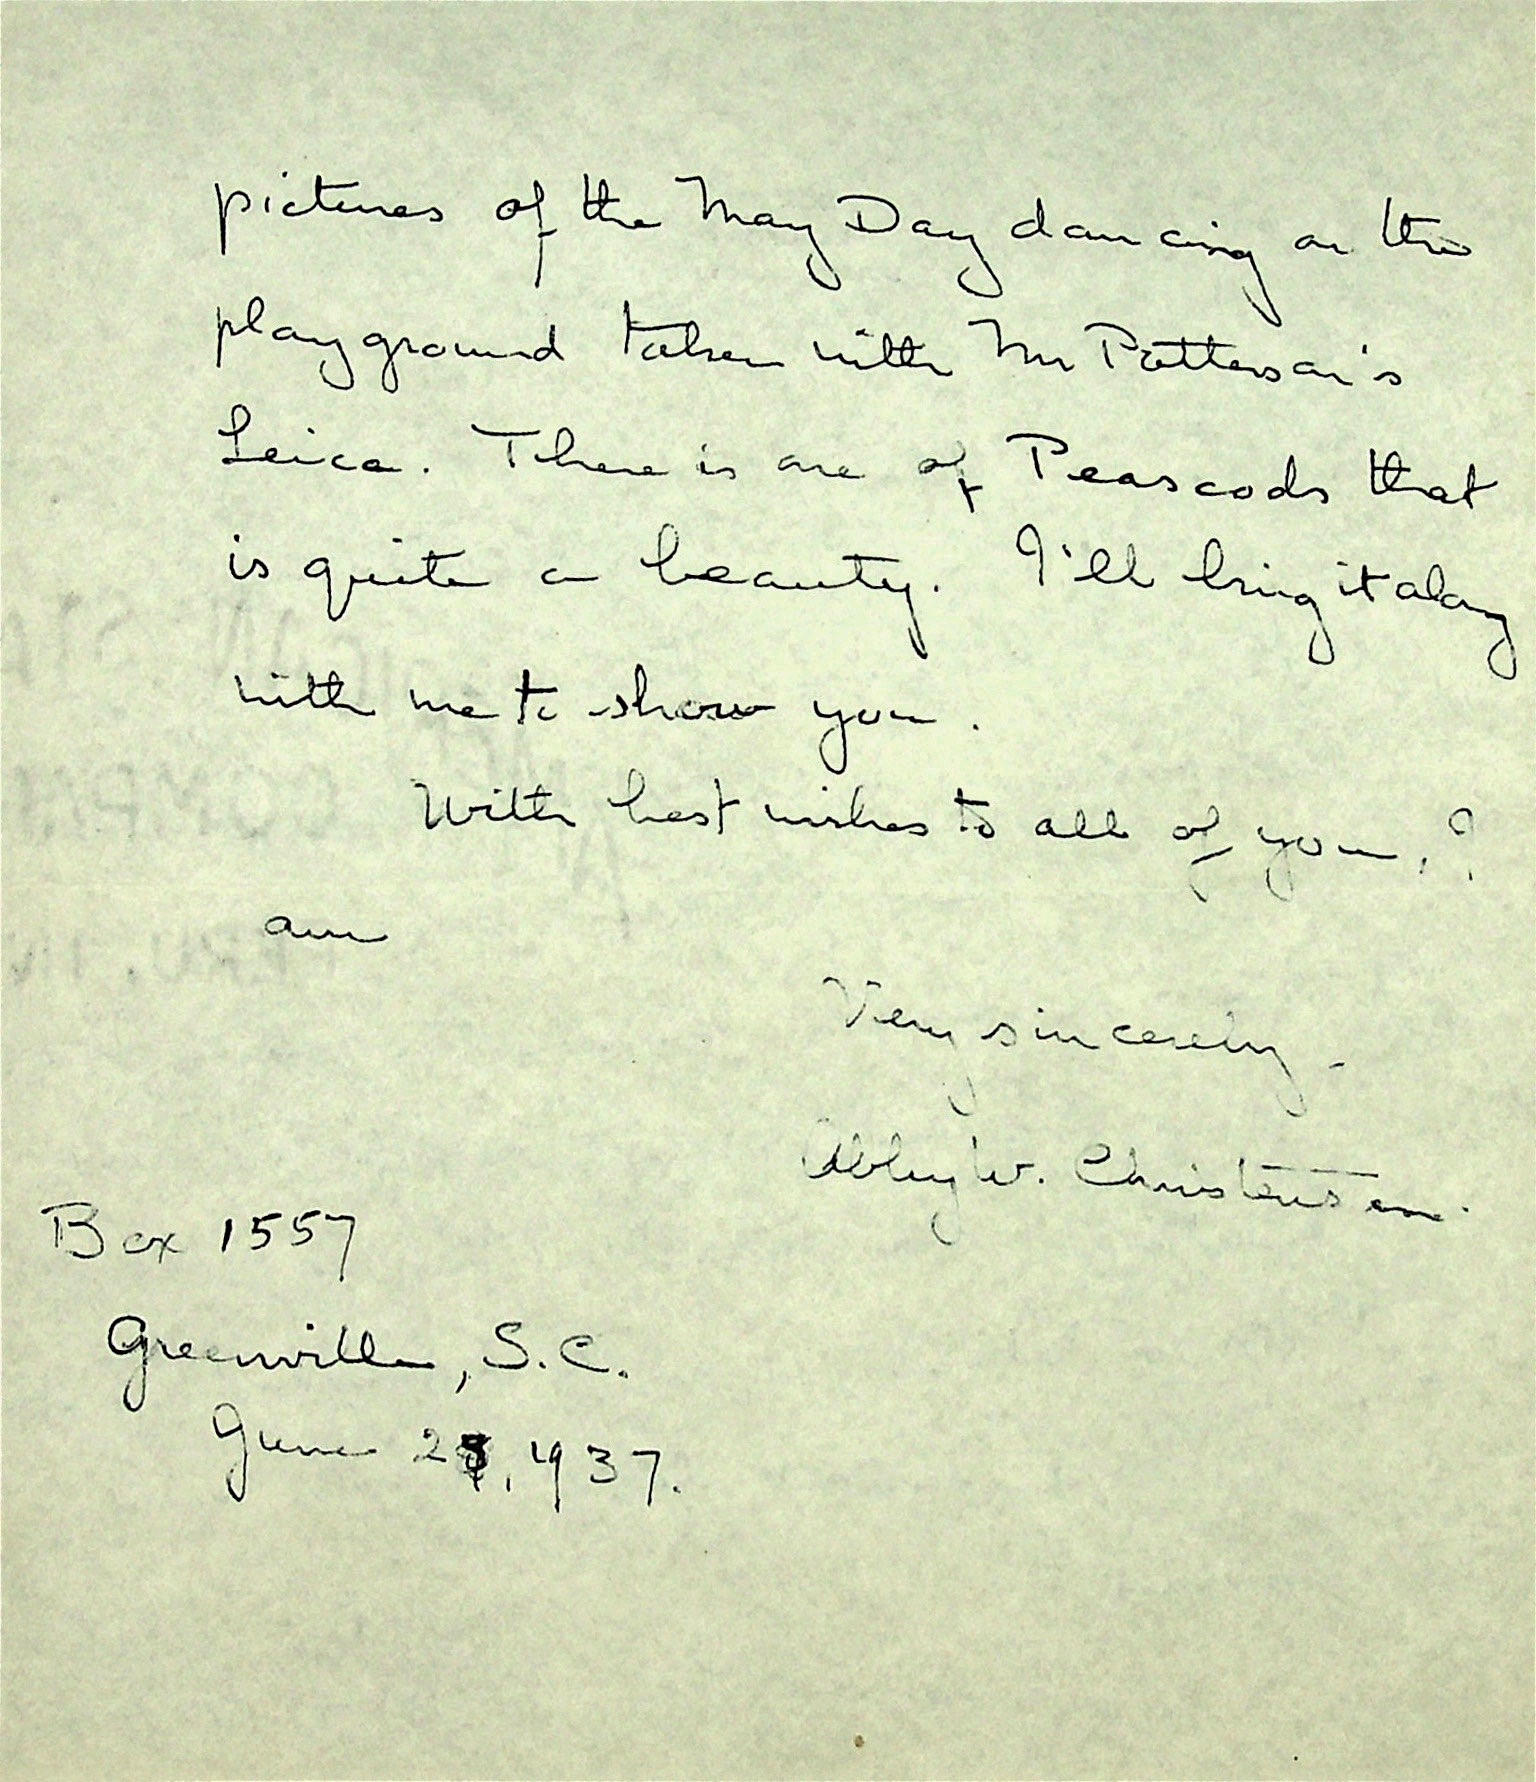 pictures of the May Day dancing on the
playground taken with Mr Patterson's
Leica. There is one of Peascods that
is quite a beauty. I'll bring it along
with me to show you.
With best wishes to all of you, I
am
Very sincerely -
Abby W. Christensen.
Box 1557
Greenville, S.C.
June , 1937.